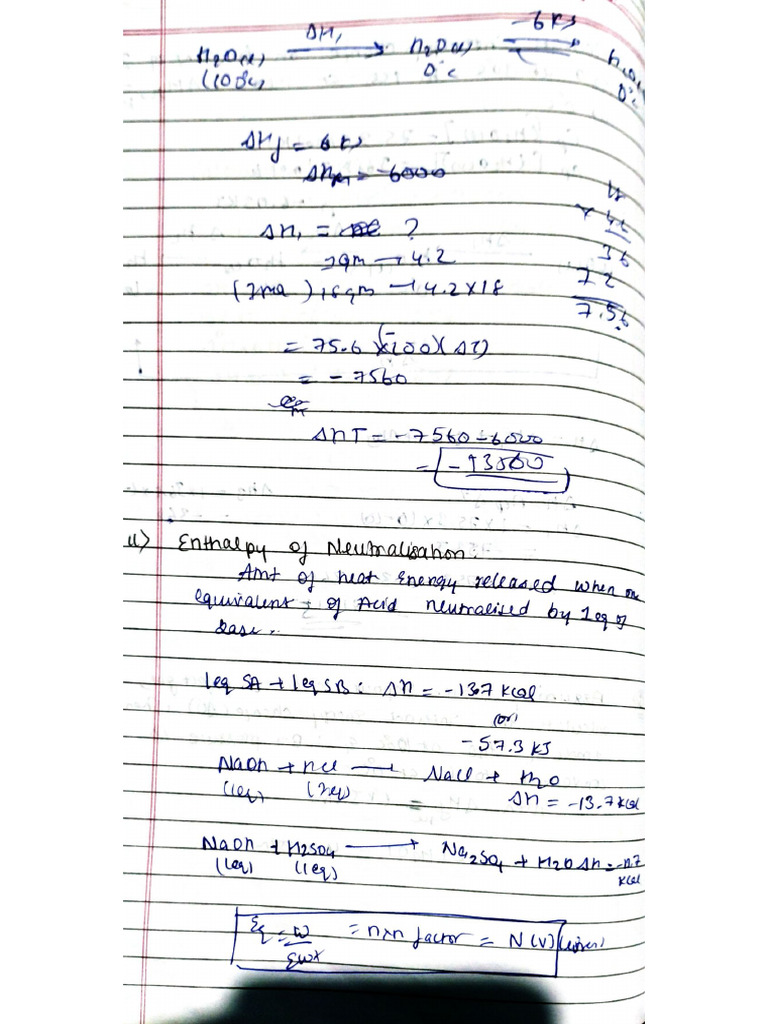 H2O(l) ΔH1 → H2O(l) -6KJ →
(100°c) 0°c 0°c
ΔHf = 6KJ
ΔHm = -6000
ΔH1 = ?
1gm → 4.2
(1mol) 18gm → 4.2×18
36
72
7.56
= 75.6 × (-100)(ΔT)
= -7560
ΔHT = -7560-6000
= -13560
11) Enthalpy of Neutralisation.
Amt of heat Energy released when one
equivalent of Acid neutralised by 1eq of
base.
1eq SA + 1eq SB : ΔH = -13.7 Kcal
(or)
-57.3 KJ
NaOH + HCl → NaCl + H2O
(1eq) (1eq) ΔH = -13.7 Kcal
NaOH + H2SO4 → Na2SO4 + H2O ΔH = -13.7
(1eq) (1eq) Kcal
Eq = W/Ewt = n×n factor = N(V)(liters)